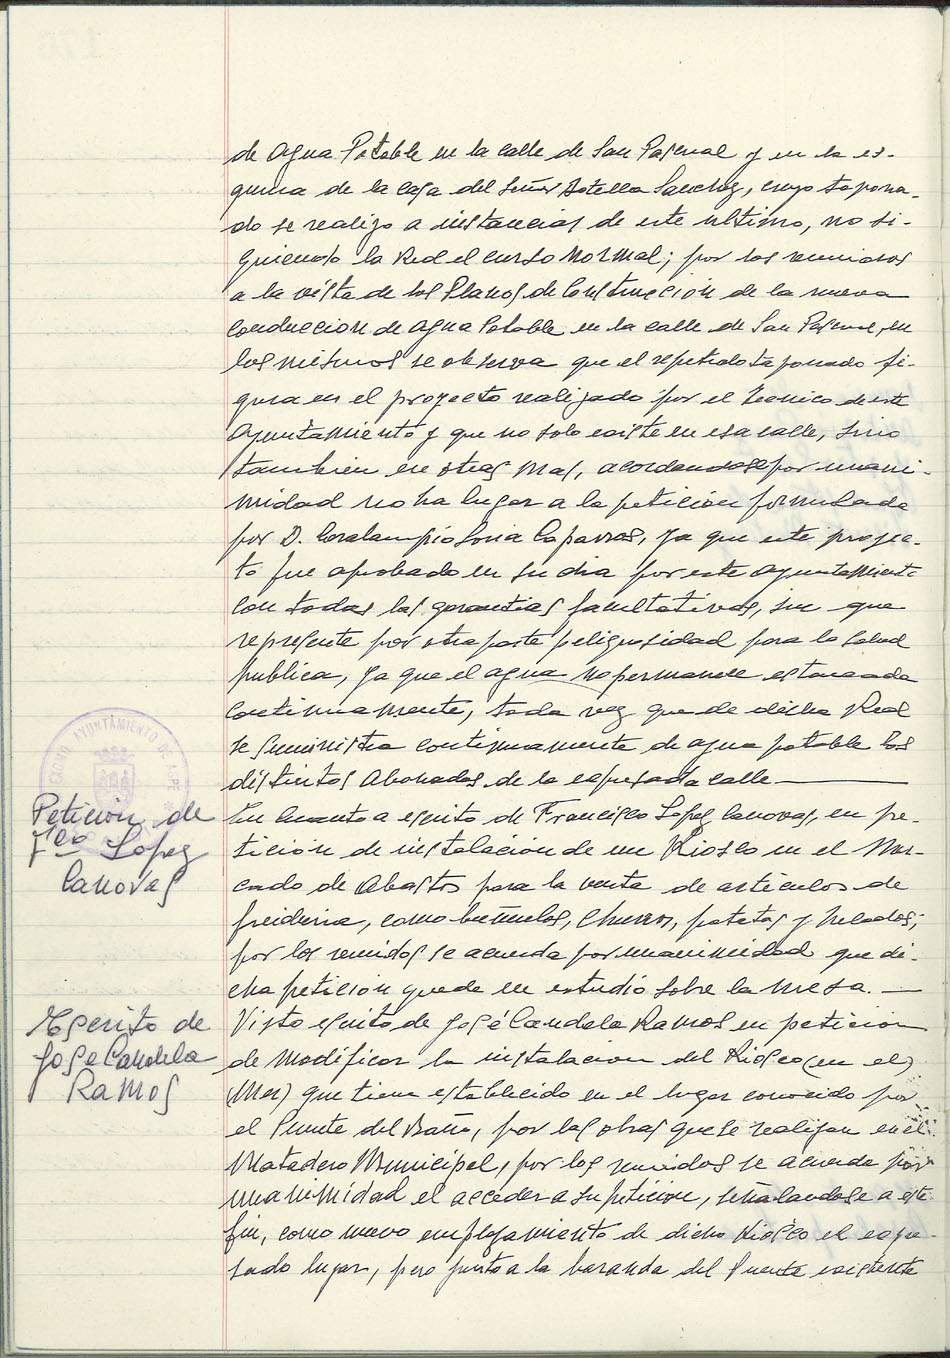 de Agua Potable en la calle de San Pascual y en la es-
quina de la casa del Señor Botella Sanchez, cuyo tapona-
do se realizo a instancias de este ultimo, no si-
guiendo la Red el curso normal; por los reunidos
a la vista de los Planos de Construccion de la nueva
conduccion de Agua Potable en la calle de San Pascual, en
los mismos se observa que el repetido taponado fi-
gura en el proyecto realizado por el Tecnico de este
Ayuntamiento y que no solo existe en esa calle, sino
tambien en otras mas, acordandose por unani-
midad no ha lugar a la peticion formulada
por D. Coralampio Soria Caparros, ya que este proyec-
to fue aprobado en su dia por este Ayuntamiento
con todas las garantias facultativas, sin que
represente por otra parte peligrosidad para la salud
publica, ya que el agua no permanece estancada
continuamente, toda vez que de dicha Red
se suministra continuamente de agua potable los
distintos Abonados de la expresada calle
EXCMO AYUNTAMIENTO DE ASPE
Petición de
Fco Lopez
Canovas
En cuanto a escrito de Francisco Lopez Canovas, en pe-
ticion de instalación de un Kiosco en el Mer-
cado de Abastos para la venta de articulos de
freiduria, como buñuelos, churros, patatas y helados;
por los reunidos se acuerda por unanimidad que di-
cha peticion quede en estudio sobre la mesa.
Escrito de
Jose Candela
Ramos
Visto escrito de José Candela Ramos en peticion
de modificar la instalacion del Kiosco (en el)
(Mer) que tiene establecido en el lugar conocido por
el Puente del Baño, por las obras que se realizan en el
Matadero Municipal, por los reunidos se acuerda por
unanimidad el acceder a su peticion, señalandose a este
fin, como nuevo emplazamiento de dicho Kiosco el expre-
sado lugar, pero junto a la baranda del Puente existente